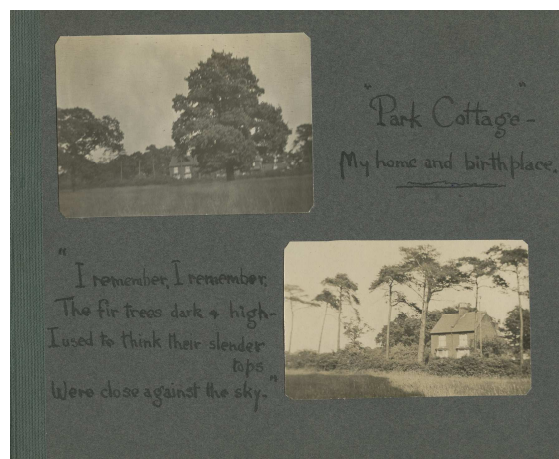 "Park Cottage" -
My home and birthplace.
"I remember, I remember,
The fir trees dark & high -
I used to think their slender
tops
Were close against the sky."